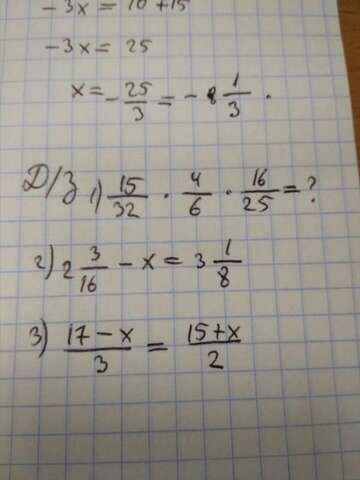 -3x = 10 + 15
-3x = 25
x = -25/3 = -8 1/3.
Д/З 1) 15/32 · 4/6 · 16/25 = ?
2) 2 3/16 - x = 3 1/8
3) (17 - x)/3 = (15 + x)/2